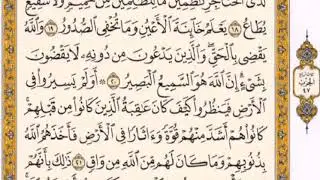 لَدَى ٱلْحَنَاجِرِ كَـٰظِمِينَ مَا لِلظَّـٰلِمِينَ مِنْ حَمِيمٍ وَلَا شَفِيعٍ
يُطَاعُ ١٨ يَعْلَمُ خَآئِنَةَ ٱلْأَعْيُنِ وَمَا تُخْفِى ٱلصُّدُورُ ١٩ وَٱللَّهُ
يَقْضِى بِٱلْحَقِّ وَٱلَّذِينَ يَدْعُونَ مِن دُونِهِۦ لَا يَقْضُونَ
بِشَىْءٍ إِنَّ ٱللَّهَ هُوَ ٱلسَّمِيعُ ٱلْبَصِيرُ ٢٠ أَوَلَمْ يَسِيرُوا۟ فِى
ٱلْأَرْضِ فَيَنظُرُوا۟ كَيْفَ كَانَ عَـٰقِبَةُ ٱلَّذِينَ كَانُوا۟ مِن قَبْلِهِمْ
كَانُوا۟ هُمْ أَشَدَّ مِنْهُمْ قُوَّةً وَءَاثَارًا فِى ٱلْأَرْضِ فَأَخَذَهُمُ ٱللَّهُ
بِذُنُوبِهِمْ وَمَا كَانَ لَهُم مِّنَ ٱللَّهِ مِن وَاقٍ ٢١ ذَٰلِكَ بِأَنَّهُمْ